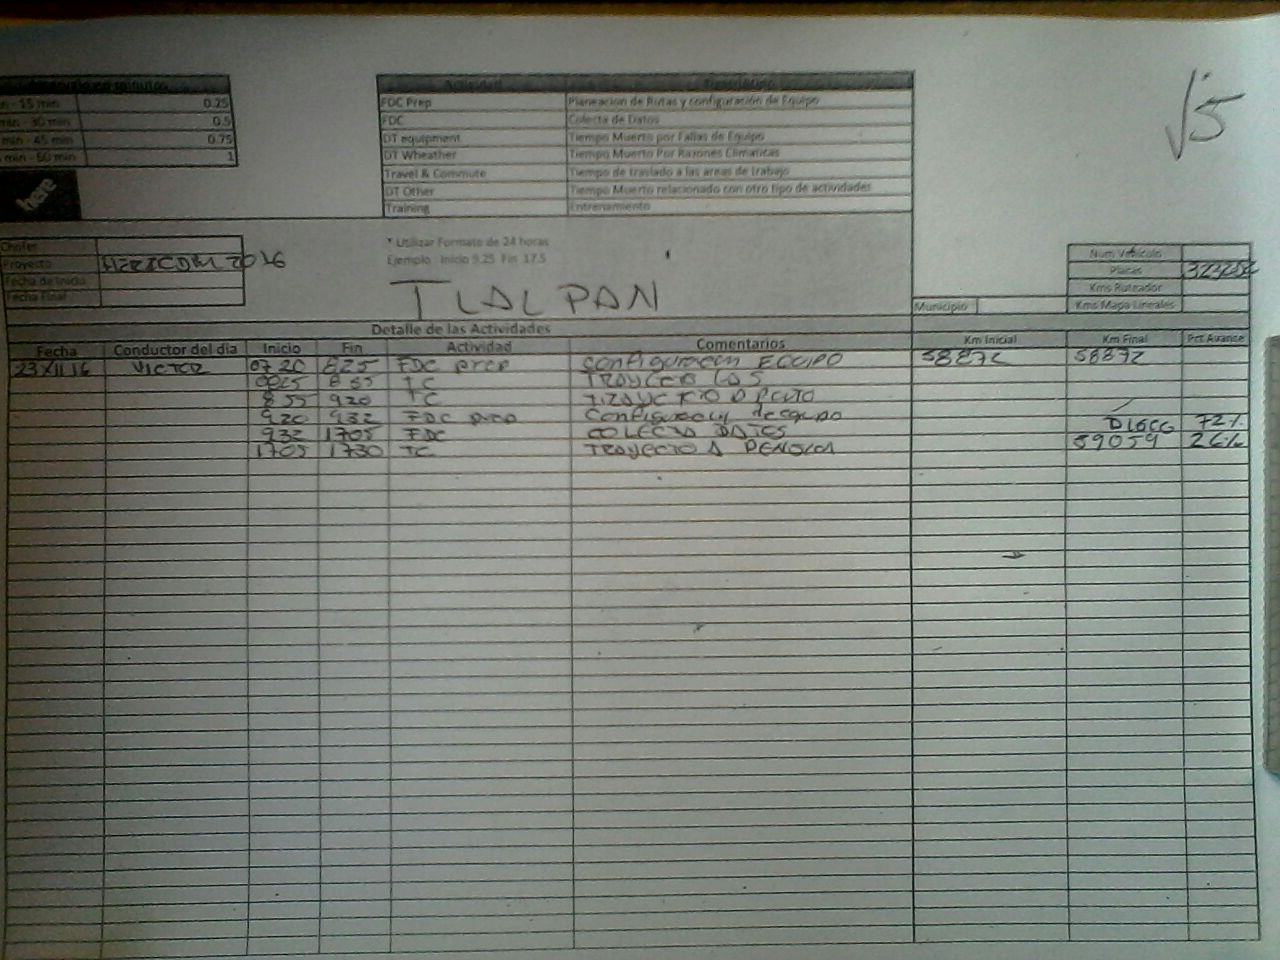 n - 15 min 0.25
min - 30 min 0.5
min - 45 min 0.75
min - 60 min 1
here
Actividad Descripción
FDC Prep Planeacion de Rutas y configuración de Equipo
FDC Colecta de Datos
DT equipment Tiempo Muerto por Fallas de Equipo
DT Wheather Tiempo Muerto Por Razones Climaticas
Travel & Commute Tiempo de traslado a las areas de trabajo
DT Other Tiempo Muerto relacionado con otro tipo de actividades
Training Entrenamiento
√5
Chofer
Proyecto 2016
Fecha de Inicio
Fecha Final
* Utilizar Formato de 24 horas
Ejemplo Inicio 9.25 Fin 17.5
TLALPAN
Num Vehiculo
Placas
Kms Ruteador
Municipio Kms Mapa Lineales
Detalle de las Actividades
Fecha Conductor del dia Inicio Fin Actividad Comentarios Km Inicial Km Final Pct Avance
23 XII 16 VICTOR 07 20 825 FDC prep configuracion EQUIPO 58872 58872
0825 855 TC TRAYECTO
855 920 TC TRAYECTO A PUNTO
920 932 FDC prep Configuracion de equipo
932 1705 FDC COLECTA DATOS 72%
1705 1730 TC TRAYECTO A PENSION 59059 26%